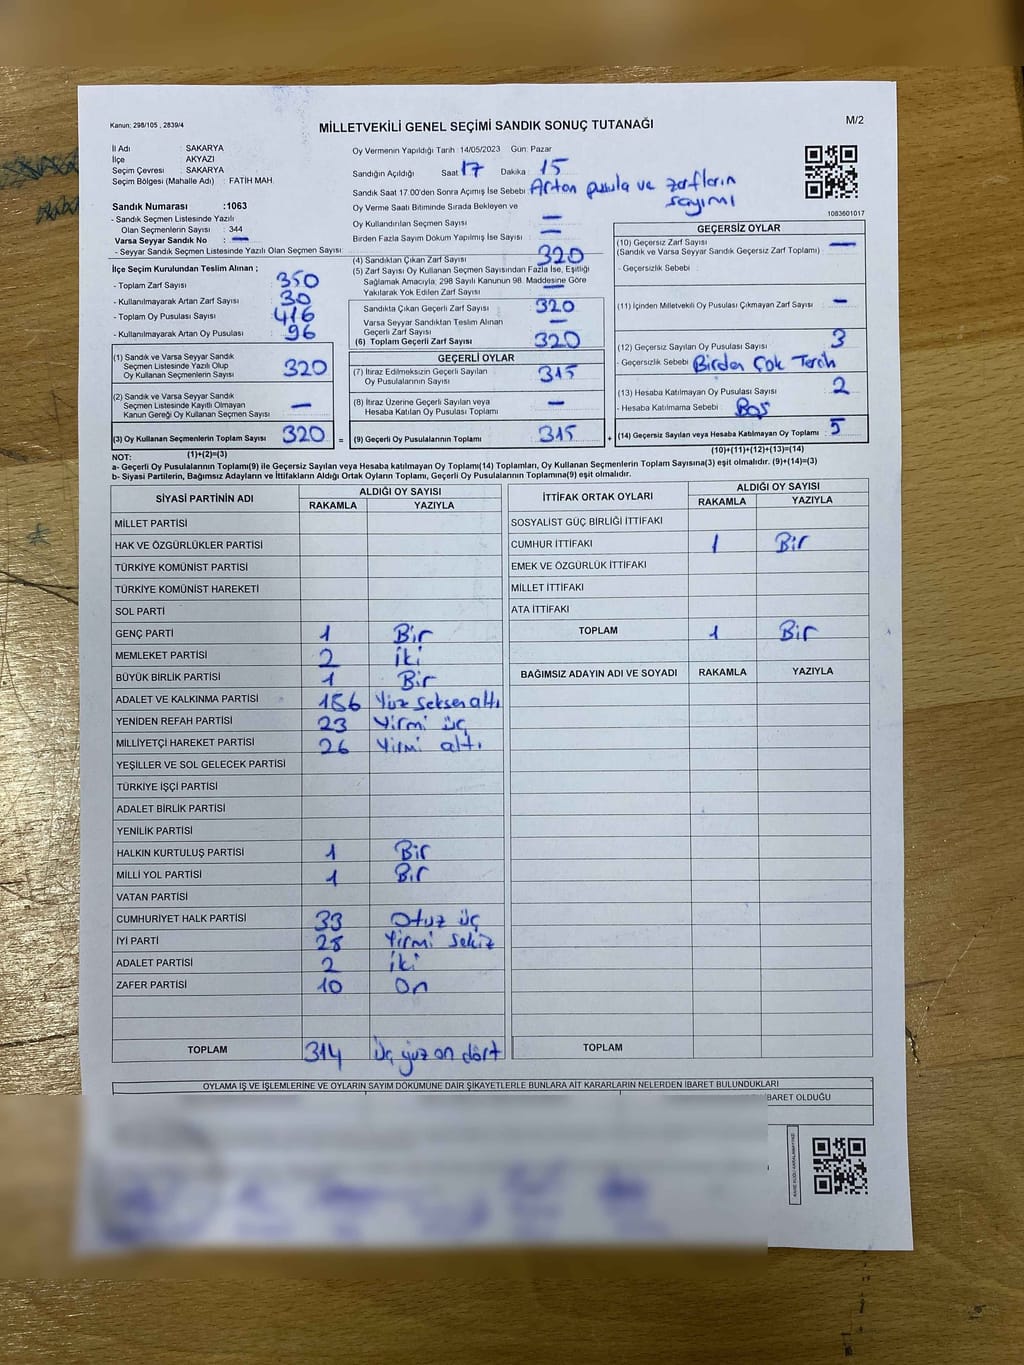 Kanun; 298/105 , 2839/4
MİLLETVEKİLİ GENEL SEÇİMİ SANDIK SONUÇ TUTANAĞI
M/2
İl Adı : SAKARYA
İlçe : AKYAZI
Seçim Çevresi : SAKARYA
Seçim Bölgesi (Mahalle Adı) : FATİH MAH.
Oy Vermenin Yapıldığı Tarih :14/05/2023 Gün: Pazar
Sandığın Açıldığı Saat 17 Dakika : 15
Sandık Saat 17.00'den Sonra Açımış İse Sebebi : Artan pusula ve zarfların
sayımı
Oy Verme Saati Bitiminde Sırada Bekleyen ve
Oy Kullandırılan Seçmen Sayısı : —
Birden Fazla Sayım Dökum Yapılmış İse Sayısı : —
1083601017
Sandık Numarası :1063
- Sandık Seçmen Listesinde Yazılı
Olan Seçmenlerin Sayısı : 344
Varsa Seyyar Sandık No : —
- Seyyar Sandık Seçmen Listesinde Yazılı Olan Seçmen Sayısı:
İlçe Seçim Kurulundan Teslim Alınan ;
- Toplam Zarf Sayısı : 350
- Kullanılmayarak Artan Zarf Sayısı : 30
- Toplam Oy Pusulası Sayısı : 416
- Kullanılmayarak Artan Oy Pusulası : 96
(1) Sandık ve Varsa Seyyar Sandık
Seçmen Listesinde Yazılı Olup
Oy Kullanan Seçmenlerin Sayısı : 320
(2) Sandık ve Varsa Seyyar Sandık
Seçmen Listesinde Kayıtlı Olmayan
Kanun Gereği Oy Kullanan Seçmen Sayısı : —
(3) Oy Kullanan Seçmenlerin Toplam Sayısı : 320
=
(4) Sandıktan Çıkan Zarf Sayısı : 320
(5) Zarf Sayısı Oy Kullanan Seçmen Sayısından Fazla İse, Eşitliği
Sağlamak Amacıyla; 298 Sayılı Kanunun 98. Maddesine Göre
Yakılarak Yok Edilen Zarf Sayısı : —
Sandıkta Çıkan Geçerli Zarf Sayısı : 320
Varsa Seyyar Sandıktan Teslim Alınan
Geçerli Zarf Sayısı : —
(6) Toplam Geçerli Zarf Sayısı : 320
GEÇERLİ OYLAR
(7) İtiraz Edilmeksizin Geçerli Sayılan
Oy Pusulalarının Sayısı : 315
(8) İtiraz Üzerine Geçerli Sayılan veya
Hesaba Katılan Oy Pusulası Toplamı : —
(9) Geçerli Oy Pusulalarının Toplamı : 315
+
GEÇERSİZ OYLAR
(10) Geçersiz Zarf Sayısı : —
(Sandık ve Varsa Seyyar Sandık Geçersiz Zarf Toplamı)
- Geçersizlik Sebebi :
(11) İçinden Milletvekili Oy Pusulası Çıkmayan Zarf Sayısı : —
(12) Geçersiz Sayılan Oy Pusulası Sayısı : 3
- Geçersizlik Sebebi : Birden Çok Tercih
(13) Hesaba Katılmayan Oy Pusulası Sayısı : 2
- Hesaba Katılmama Sebebi : Boş
(14) Geçersiz Sayılan veya Hesaba Katılmayan Oy Toplamı : 5
NOT: (1)+(2)=(3)
(10)+(11)+(12)+(13)=(14)
a- Geçerli Oy Pusulalarının Toplamı(9) ile Geçersiz Sayılan veya Hesaba katılmayan Oy Toplamı(14) Toplamları, Oy Kullanan Seçmenlerin Toplam Sayısına(3) eşit olmalıdır. (9)+(14)=(3)
b- Siyasi Partilerin, Bağımsız Adayların ve İttifakların Aldığı Ortak Oyların Toplamı, Geçerli Oy Pusulalarının Toplamına(9) eşit olmalıdır.
SİYASİ PARTİNİN ADI ALDIĞI OY SAYISI
RAKAMLA YAZIYLA
MİLLET PARTİSİ
HAK VE ÖZGÜRLÜKLER PARTİSİ
TÜRKİYE KOMÜNİST PARTİSİ
TÜRKİYE KOMÜNİST HAREKETİ
SOL PARTİ
GENÇ PARTİ 1 Bir
MEMLEKET PARTİSİ 2 iki
BÜYÜK BİRLİK PARTİSİ 1 Bir
ADALET VE KALKINMA PARTİSİ 186 Yüz seksen altı
YENİDEN REFAH PARTİSİ 23 Yirmi üç
MİLLİYETÇİ HAREKET PARTİSİ 26 Yirmi altı
YEŞİLLER VE SOL GELECEK PARTİSİ
TÜRKİYE İŞÇİ PARTİSİ
ADALET BİRLİK PARTİSİ
YENİLİK PARTİSİ
HALKIN KURTULUŞ PARTİSİ 1 Bir
MİLLİ YOL PARTİSİ 1 Bir
VATAN PARTİSİ
CUMHURİYET HALK PARTİSİ 33 Otuz üç
İYİ PARTİ 28 Yirmi sekiz
ADALET PARTİSİ 2 iki
ZAFER PARTİSİ 10 On
TOPLAM 314 üç yüz on dört
İTTİFAK ORTAK OYLARI ALDIĞI OY SAYISI
RAKAMLA YAZIYLA
SOSYALİST GÜÇ BİRLİĞİ İTTİFAKI
CUMHUR İTTİFAKI 1 Bir
EMEK VE ÖZGÜRLÜK İTTİFAKI
MİLLET İTTİFAKI
ATA İTTİFAKI
TOPLAM 1 Bir
BAĞIMSIZ ADAYIN ADI VE SOYADI RAKAMLA YAZIYLA
TOPLAM
OYLAMA İŞ VE İŞLEMLERİNE VE OYLARIN SAYIM DÖKÜMÜNE DAİR ŞİKAYETLERLE BUNLARA AİT KARARLARIN NELERDEN İBARET BULUNDUKLARI
İBARET OLDUĞU